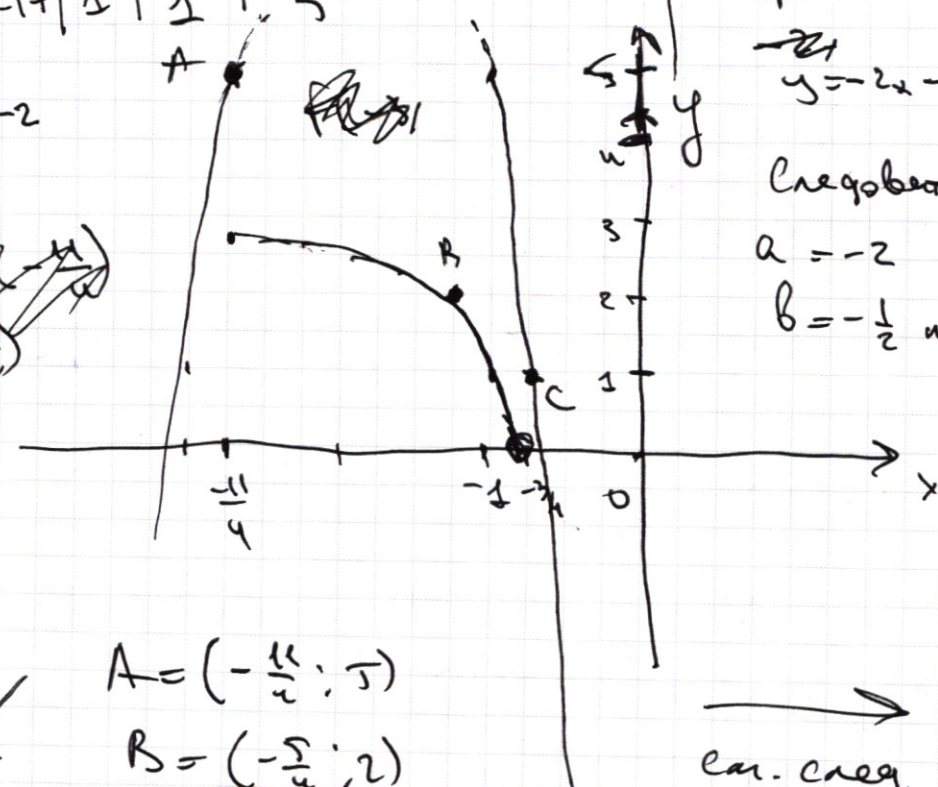 A
-2
B
C
5
y
4
3
2
1
-11/4
-1
-3/4
0
x
y = -2x -
Следова
a = -2
b = -1/2 и
A = (-11/4; 5)
B = (-5/4; 2)
см. след